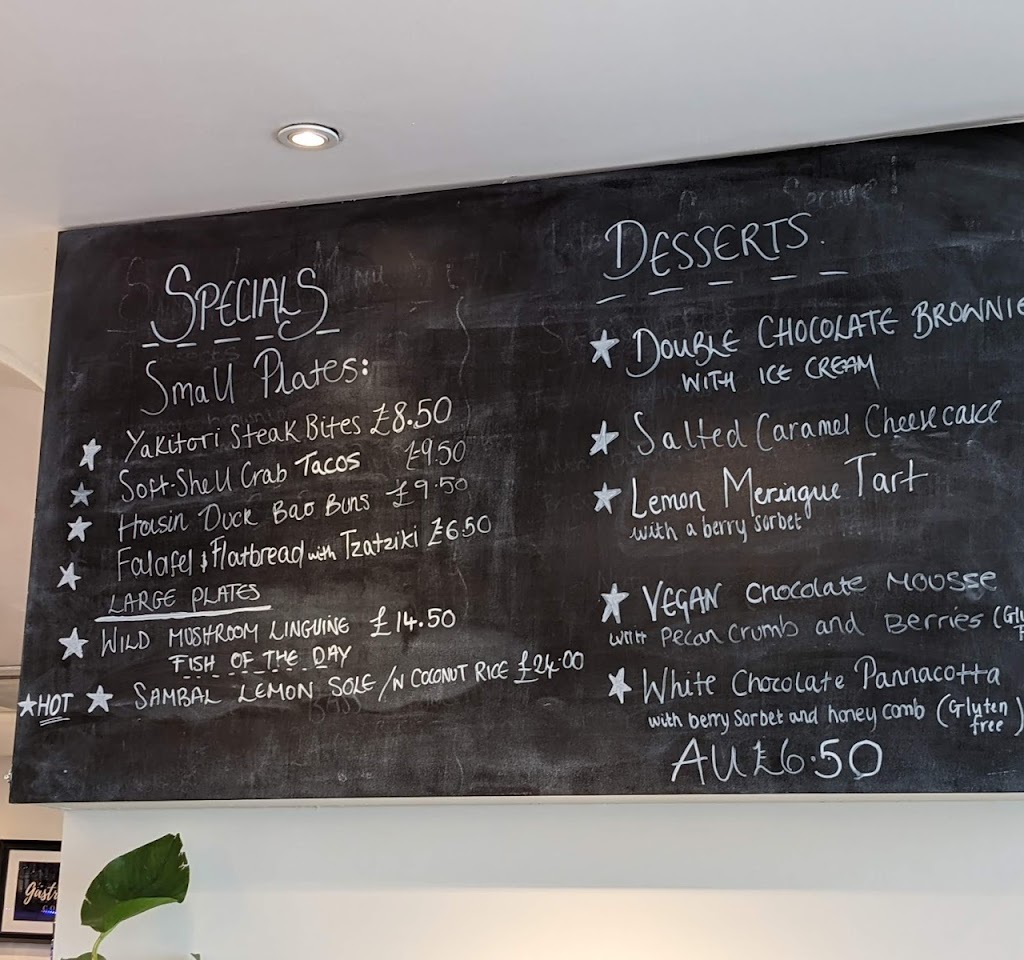 SPECIALS
Small Plates:
Yakitori Steak Bites £8.50
Soft-Shell Crab Tacos £9.50
Hoisin Duck Bao Buns £9.50
Falafel & Flatbread with Tzatziki £6.50
LARGE PLATES
WILD MUSHROOM LINGUINE £14.50
FISH OF THE DAY
HOT SAMBAL LEMON SOLE / N COCONUT RICE £24.00
DESSERTS.
DOUBLE CHOCOLATE BROWNIE
WITH ICE CREAM
Salted Caramel Cheesecake
Lemon Meringue Tart
with a berry sorbet
VEGAN Chocolate Mousse
with Pecan Crumb and Berries
White Chocolate Pannacotta
with berry sorbet and honey comb (Gluten
free)
All £6.50